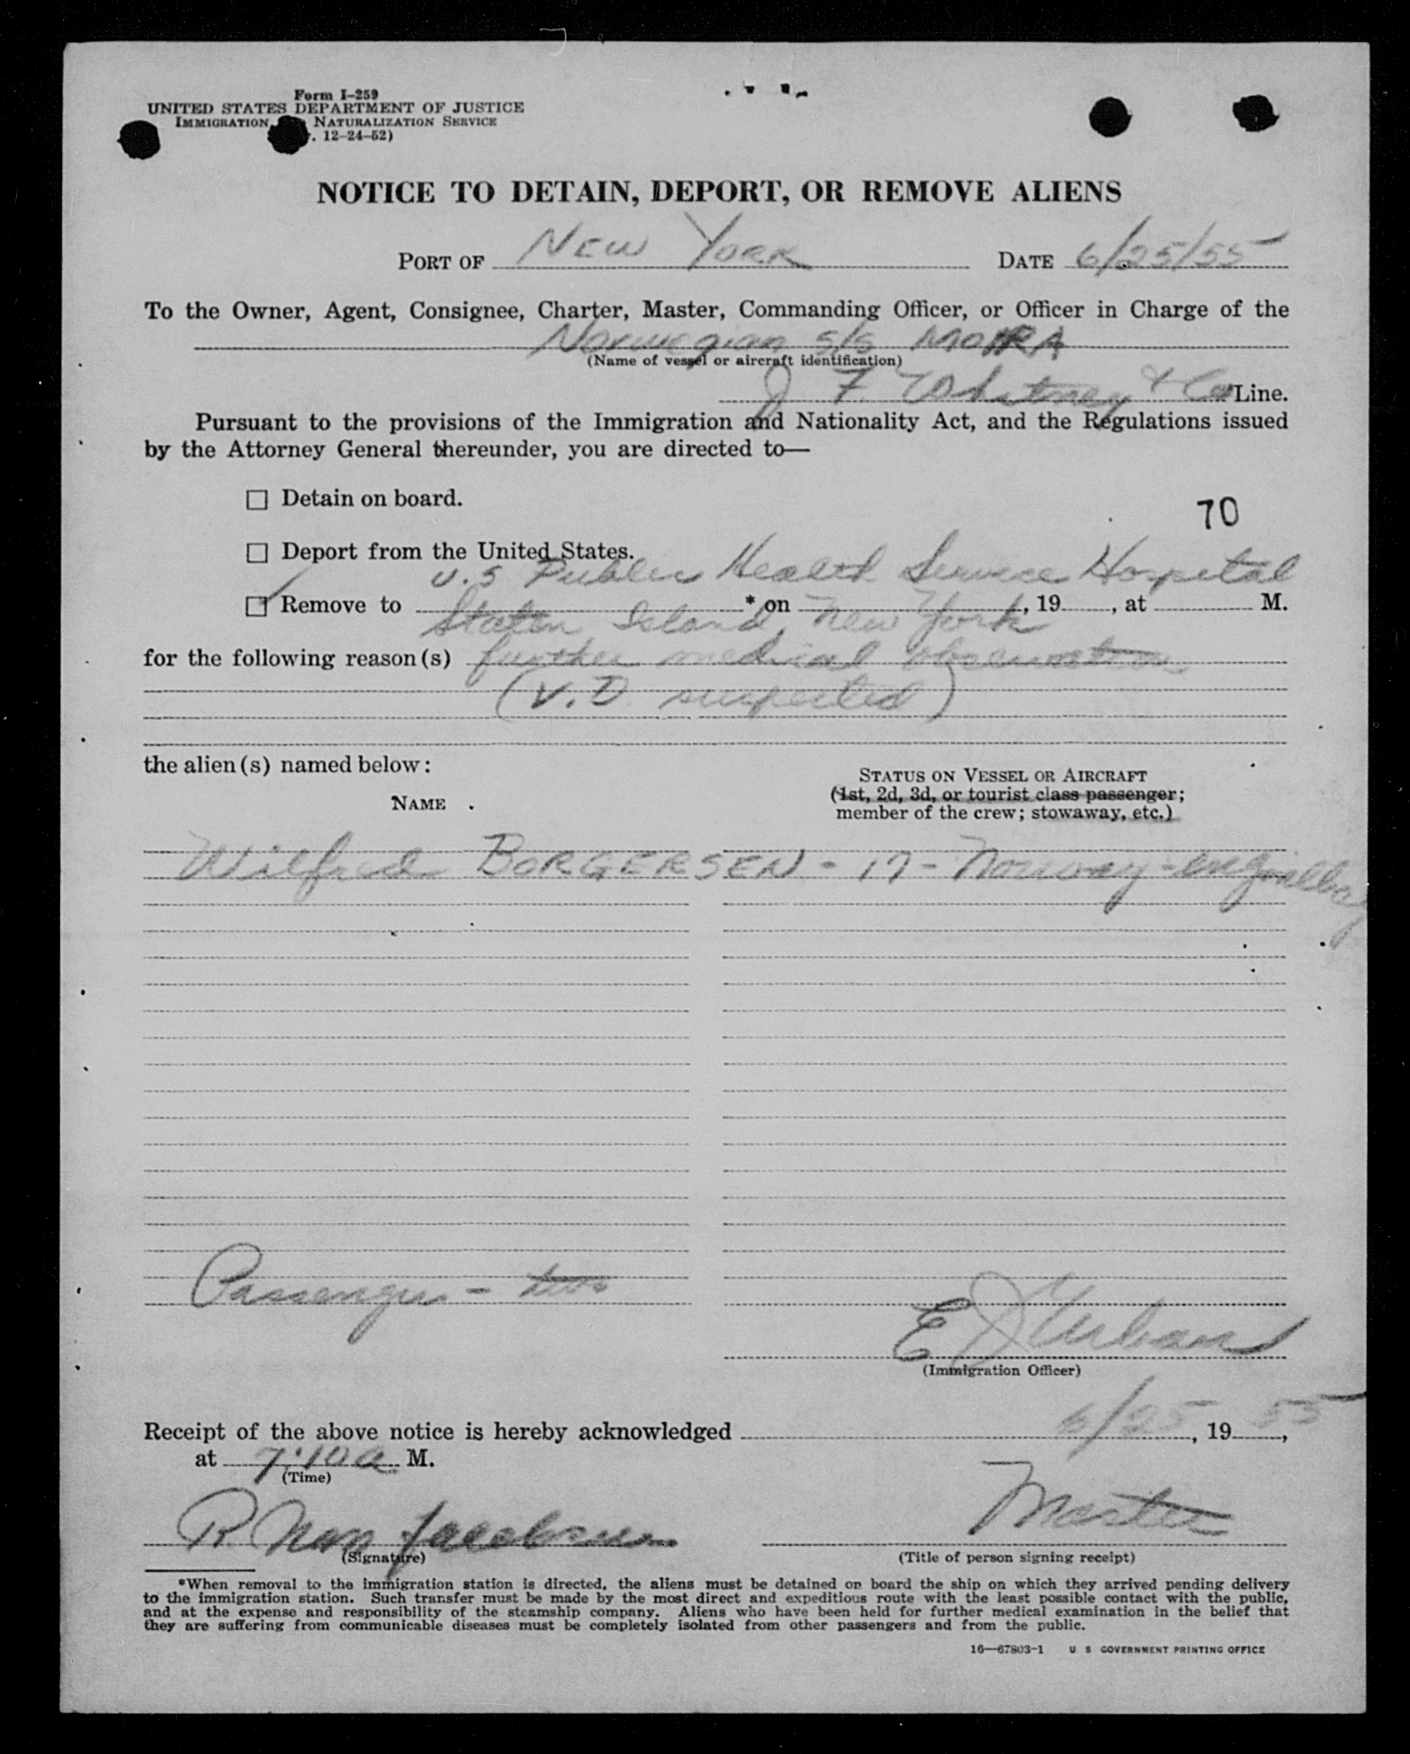 Form I-259
UNITED STATES DEPARTMENT OF JUSTICE
IMMIGRATION NATURALIZATION SERVICE
. 12-24-52)
NOTICE TO DETAIN, DEPORT, OR REMOVE ALIENS
PORT OF NEW YORK DATE 6/25/55
To the Owner, Agent, Consignee, Charter, Master, Commanding Officer, or Officer in Charge of the
Norwegian S/S MOIRA
(Name of vessel or aircraft identification)
J F. Whitney & Co Line.
Pursuant to the provisions of the Immigration and Nationality Act, and the Regulations issued
by the Attorney General thereunder, you are directed to—
☐ Detain on board.
70
☐ Deport from the United States.
U.S Public Health Service Hospital
☑ Remove to * on , 19 , at M.
Staten Island, New York
for the following reason(s) further medical observation
(V.D suspected)
the alien(s) named below:
STATUS ON VESSEL OR AIRCRAFT
NAME (1st, 2d, 3d, or tourist class passenger;
member of the crew; stowaway, etc.)
Wilfred BORGERSEN - 17 - Norway -
Passenger - two
E J Urban
(Immigration Officer)
Receipt of the above notice is hereby acknowledged 6/25, 19 55,
at 7:10 a M.
(Time)
R. Jacobsen Master
(Signature) (Title of person signing receipt)
*When removal to the immigration station is directed, the aliens must be detained on board the ship on which they arrived pending delivery
to the immigration station. Such transfer must be made by the most direct and expeditious route with the least possible contact with the public,
and at the expense and responsibility of the steamship company. Aliens who have been held for further medical examination in the belief that
they are suffering from communicable diseases must be completely isolated from other passengers and from the public.
16—67803-1 U S GOVERNMENT PRINTING OFFICE